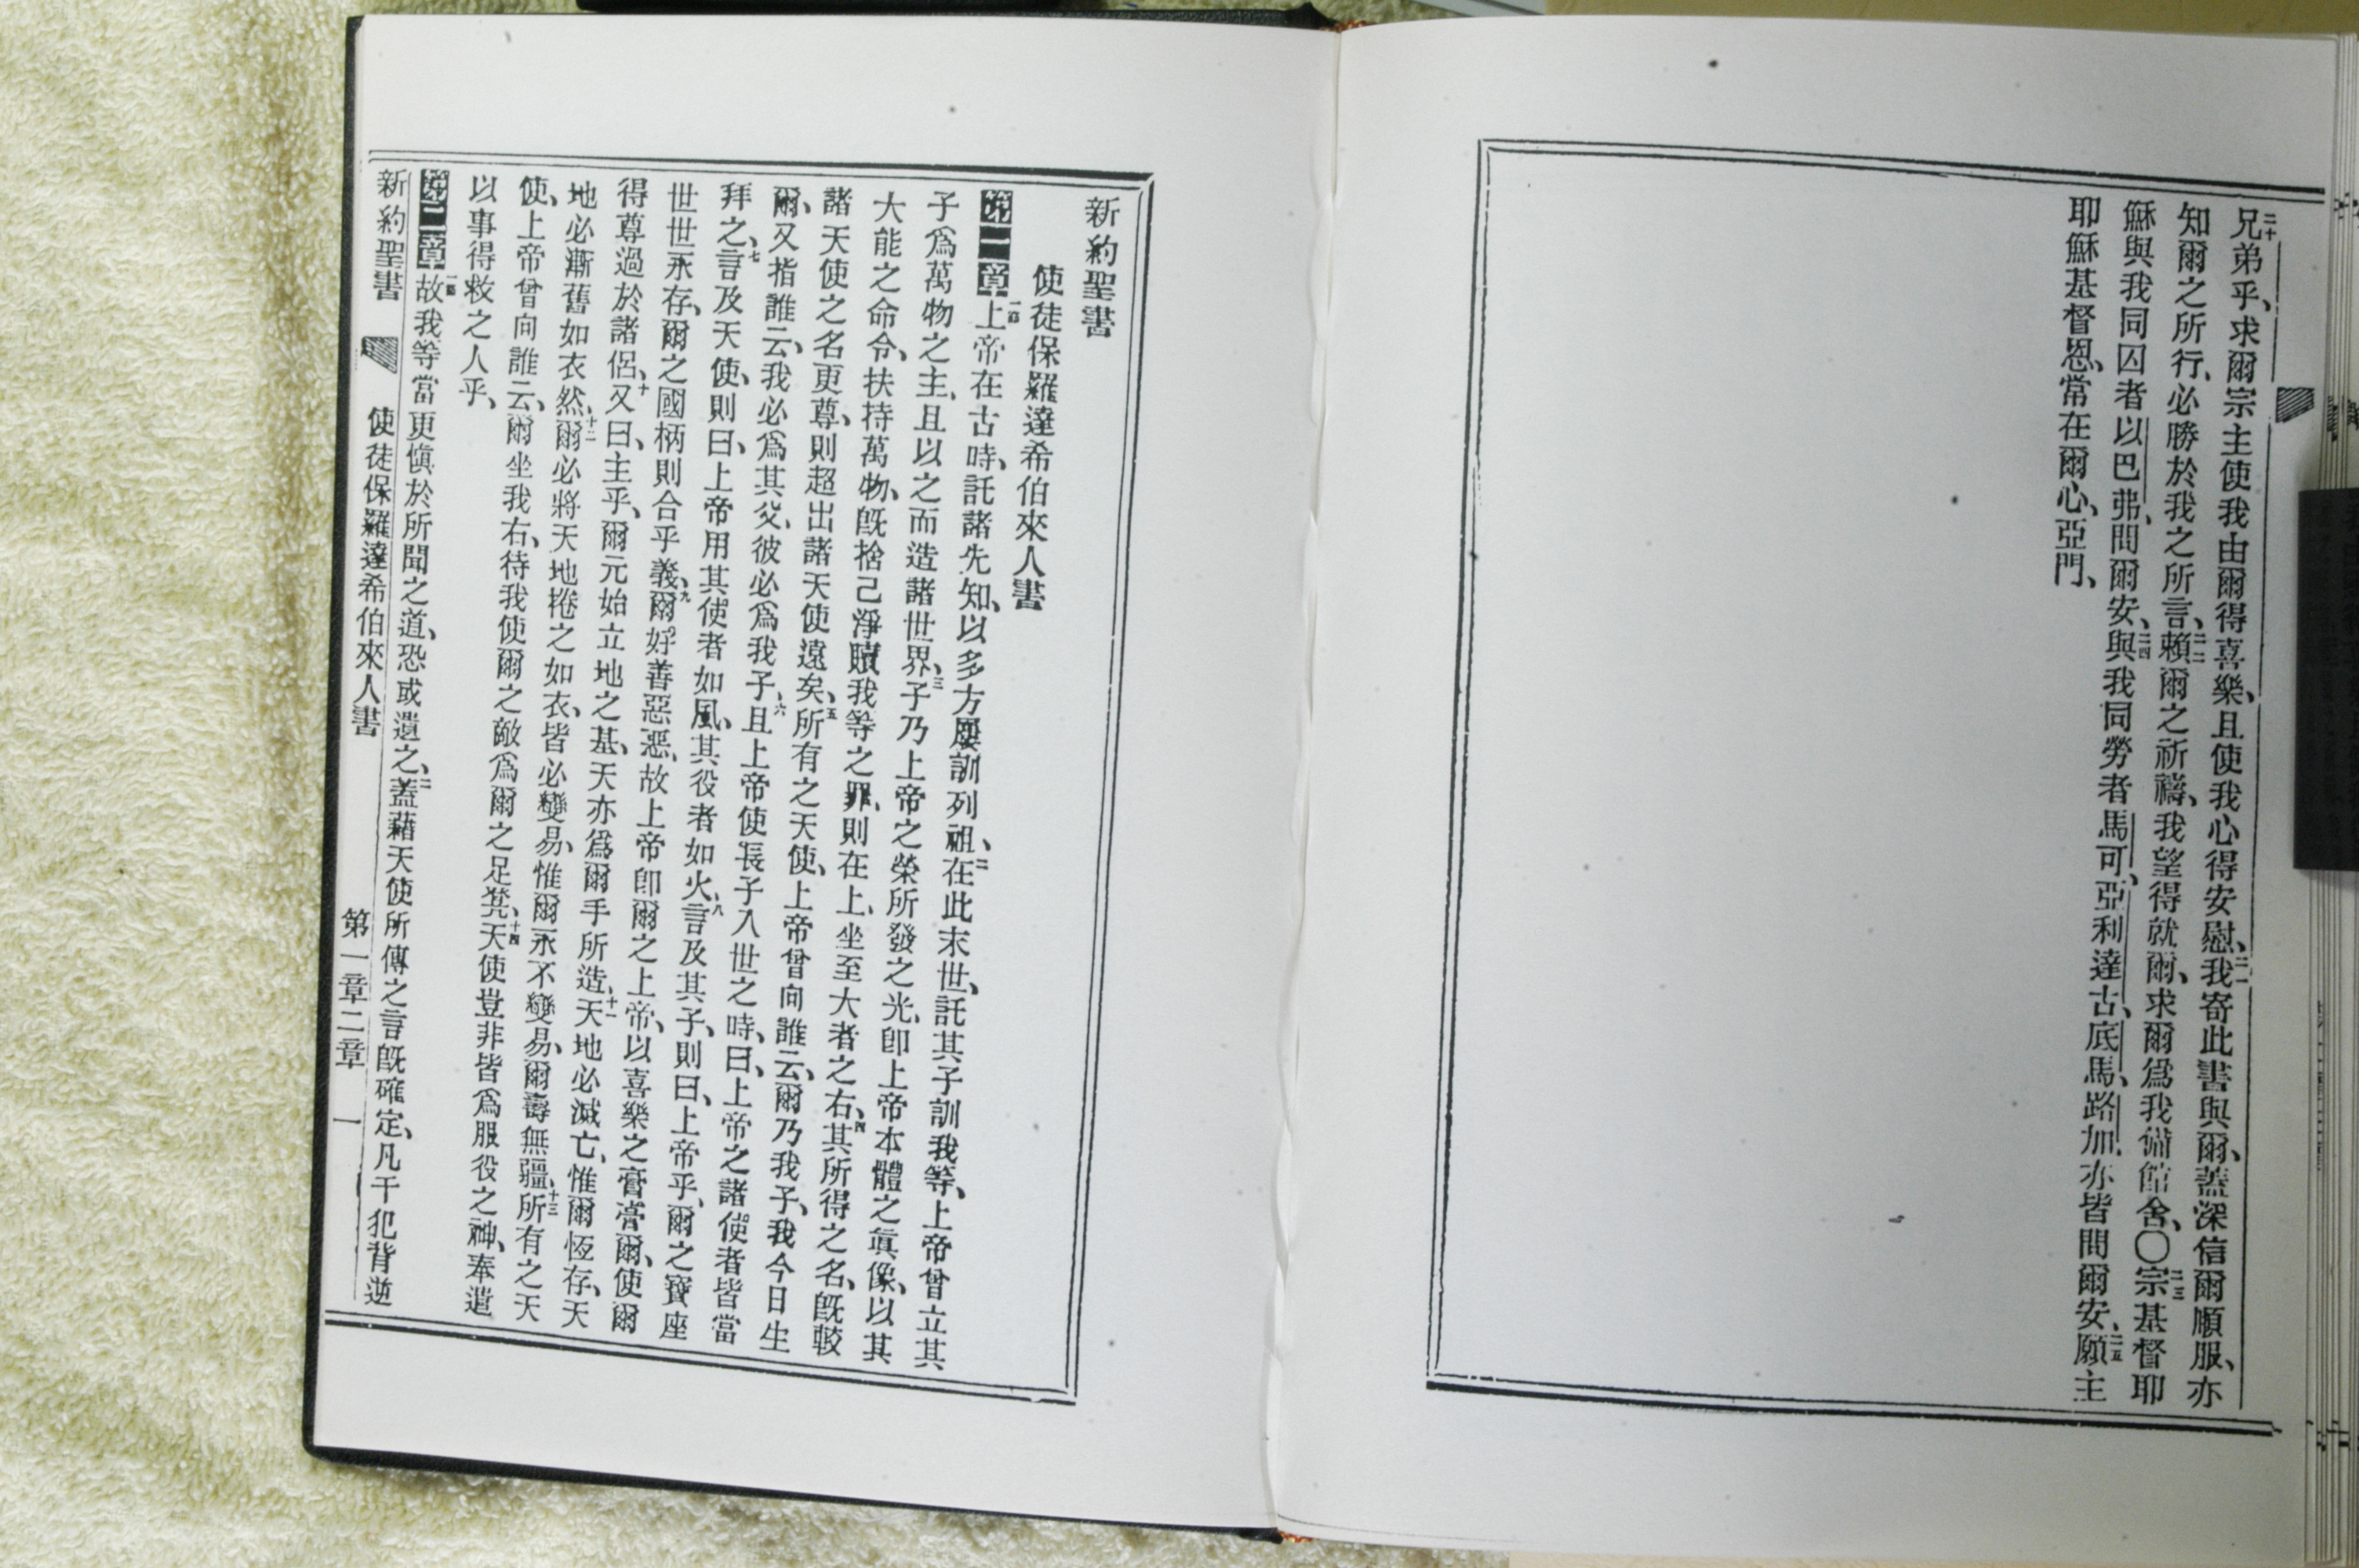 二十兄弟乎、求爾宗主使我由爾得喜樂、且使我心得安慰、二一我寄此書與爾、蓋深信爾順服、亦
知爾之所行、必勝於我之所言、二二賴爾之祈禱、我望得就爾、求爾爲我備館舍、〇二三宗基督耶
穌與我同囚者以巴弗、問爾安、二四與我同勞者馬可、亞利達古、底馬、路加、亦皆問爾安、二五願主
耶穌基督恩、常在爾心、亞門、
新約聖書
使徒保羅達希伯來人書
第一章一節上帝在古時、託諸先知、以多方屢訓列祖、二在此末世、託其子訓我等、上帝曾立其
子爲萬物之主、且以之而造諸世界、三子乃上帝之榮所發之光、卽上帝本體之眞像、以其
大能之命令、扶持萬物、旣捨己淨贖我等之罪、則在上、坐至大者之右、四其所得之名、旣較
諸天使之名更尊、則超出諸天使遠矣、五所有之天使、上帝曾向誰云、爾乃我子、我今日生
爾、又指誰云、我必爲其父、彼必爲我子、六且上帝使長子入世之時、曰、上帝之諸使者皆當
拜之、七言及天使、則曰、上帝用其使者如風、其役者如火、八言及其子、則曰、上帝乎、爾之寶座
世世永存、爾之國柄則合乎義、九爾好善惡惡、故上帝卽爾之上帝、以喜樂之膏膏爾、使爾
得尊過於諸侶、十又曰、主乎、爾元始立地之基、天亦爲爾手所造、十一天地必滅亡、惟爾恆存、天
地必漸舊如衣然、十二爾必將天地捲之如衣、皆必變易、惟爾永不變易、爾壽無疆、十三所有之天
使、上帝曾向誰云、爾坐我右、待我使爾之敵爲爾之足凳、十四天使豈非皆爲服役之神、奉遣
以事得救之人乎、
第二章一節故我等當更愼於所聞之道、恐或遺之、二蓋藉天使所傳之言旣確定、凡干犯背逆
新約聖書 使徒保羅達希伯來人書 第一章二章 一